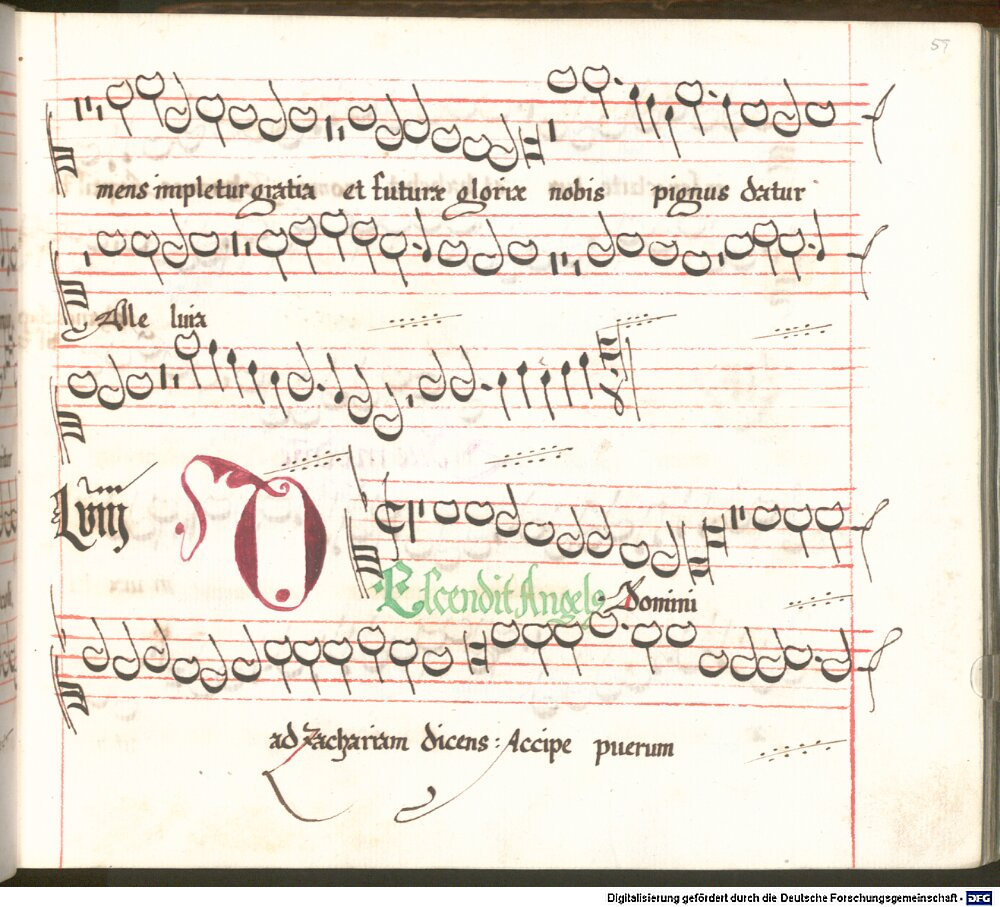 57
mens impletur gratia et futuræ gloriæ nobis pignus datur
Alle luia
Lviij D
Escendit Angelꝰ Domini
ad Zachariam dicens : Accipe puerum
Digitalisierung gefördert durch die Deutsche Forschungsgemeinschaft - DFG